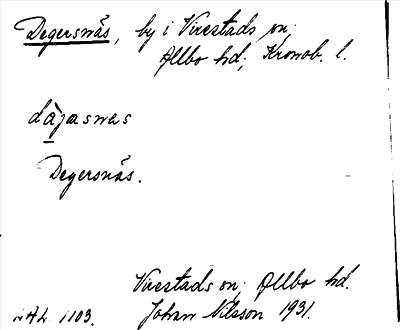 Degersnäs, by i Virestads sn;
Allbo hd; Kronob. l.
dàjasnes
Degersnäs.
Virestads sn; Allbo hd.
Johan Nilsson 1931.
1103.